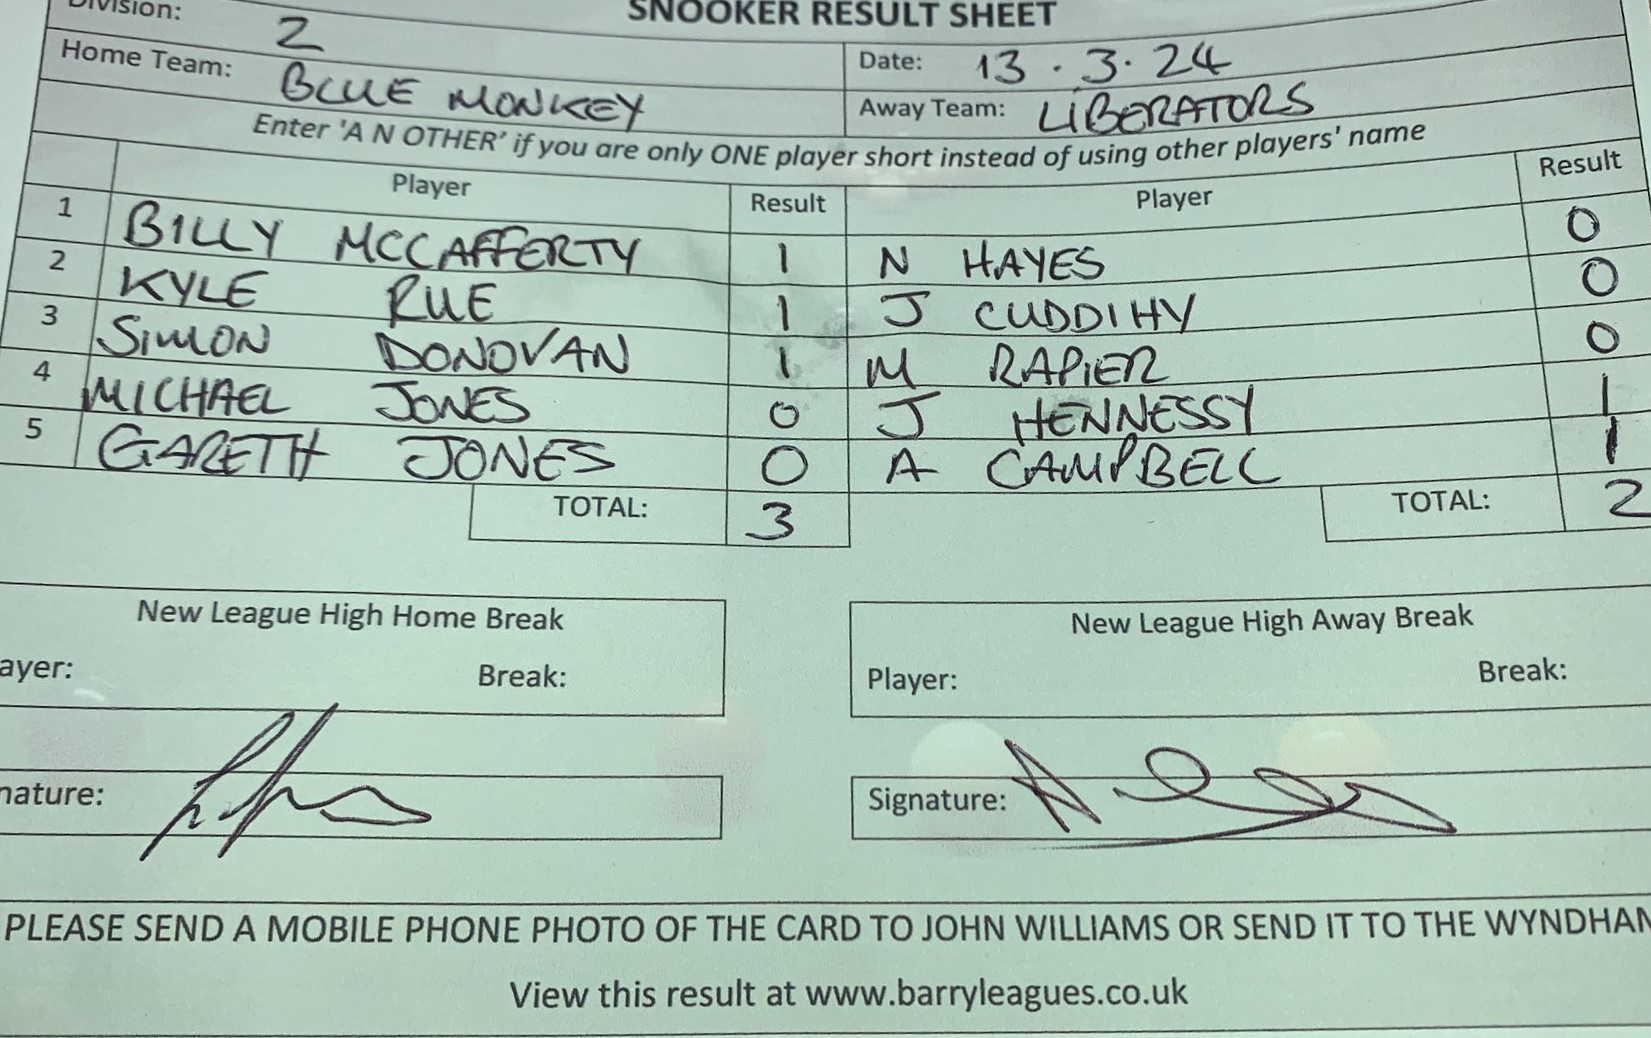 SNOOKER RESULT SHEET
Division: 2
Home Team: BLUE MONKEY Date: 13.3.24
Away Team: LIBERATORS
Enter 'A N OTHER' if you are only ONE player short instead of using other players' name
Player Result Player Result
1 BILLY MCCAFFERTY 1 N HAYES 0
2 KYLE RUE 1 J CUDDIHY 0
3 SIMON DONOVAN 1 M RAPIER 0
4 MICHAEL JONES 0 J HENNESSY 1
5 GARETH JONES 0 A CAMPBELL 1
TOTAL: 3 TOTAL: 2
New League High Home Break New League High Away Break
ayer: Break: Player: Break:
nature: Signature:
PLEASE SEND A MOBILE PHONE PHOTO OF THE CARD TO JOHN WILLIAMS OR SEND IT TO THE WYNDHAM
View this result at www.barryleagues.co.uk